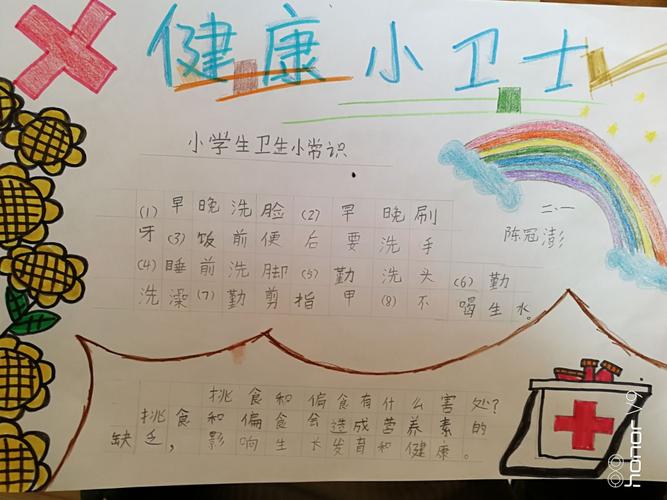 健康小卫士
小学生卫生小常识
(1)早晚洗脸(2)早晚刷
牙(3)饭前便后要洗手
(4)睡前洗脚(5)勤洗头(6)勤
洗澡(7)勤剪指甲(8)不喝生水。
二.一
陈冠澎
挑食和偏食有什么害处?
挑食和偏食会造成营养素的
缺乏,影响生长发育和健康。
honor V9